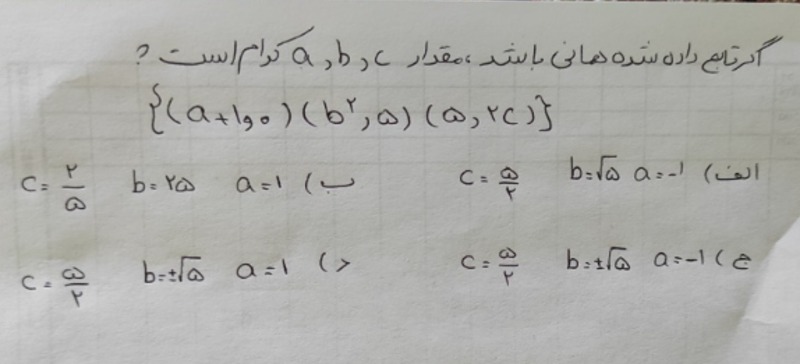 اگر تابع داده شده همانی باشد، مقدار a , b , c کدام است ؟
{(a+۱و۰) (b²,۵) (۵,۲c)}
الف) a=-۱ b=√۵ c=۵/۲
ب) a=۱ b=۲۵ c=۲/۵
ج) a=-۱ b=±√۵ c=۵/۲
د) a=۱ b=±√۵ c=۵/۲